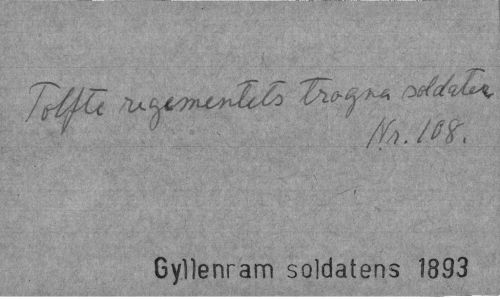 Tolfte regementets trogna soldater
Nr. 108.
Gyllenram soldatens 1893